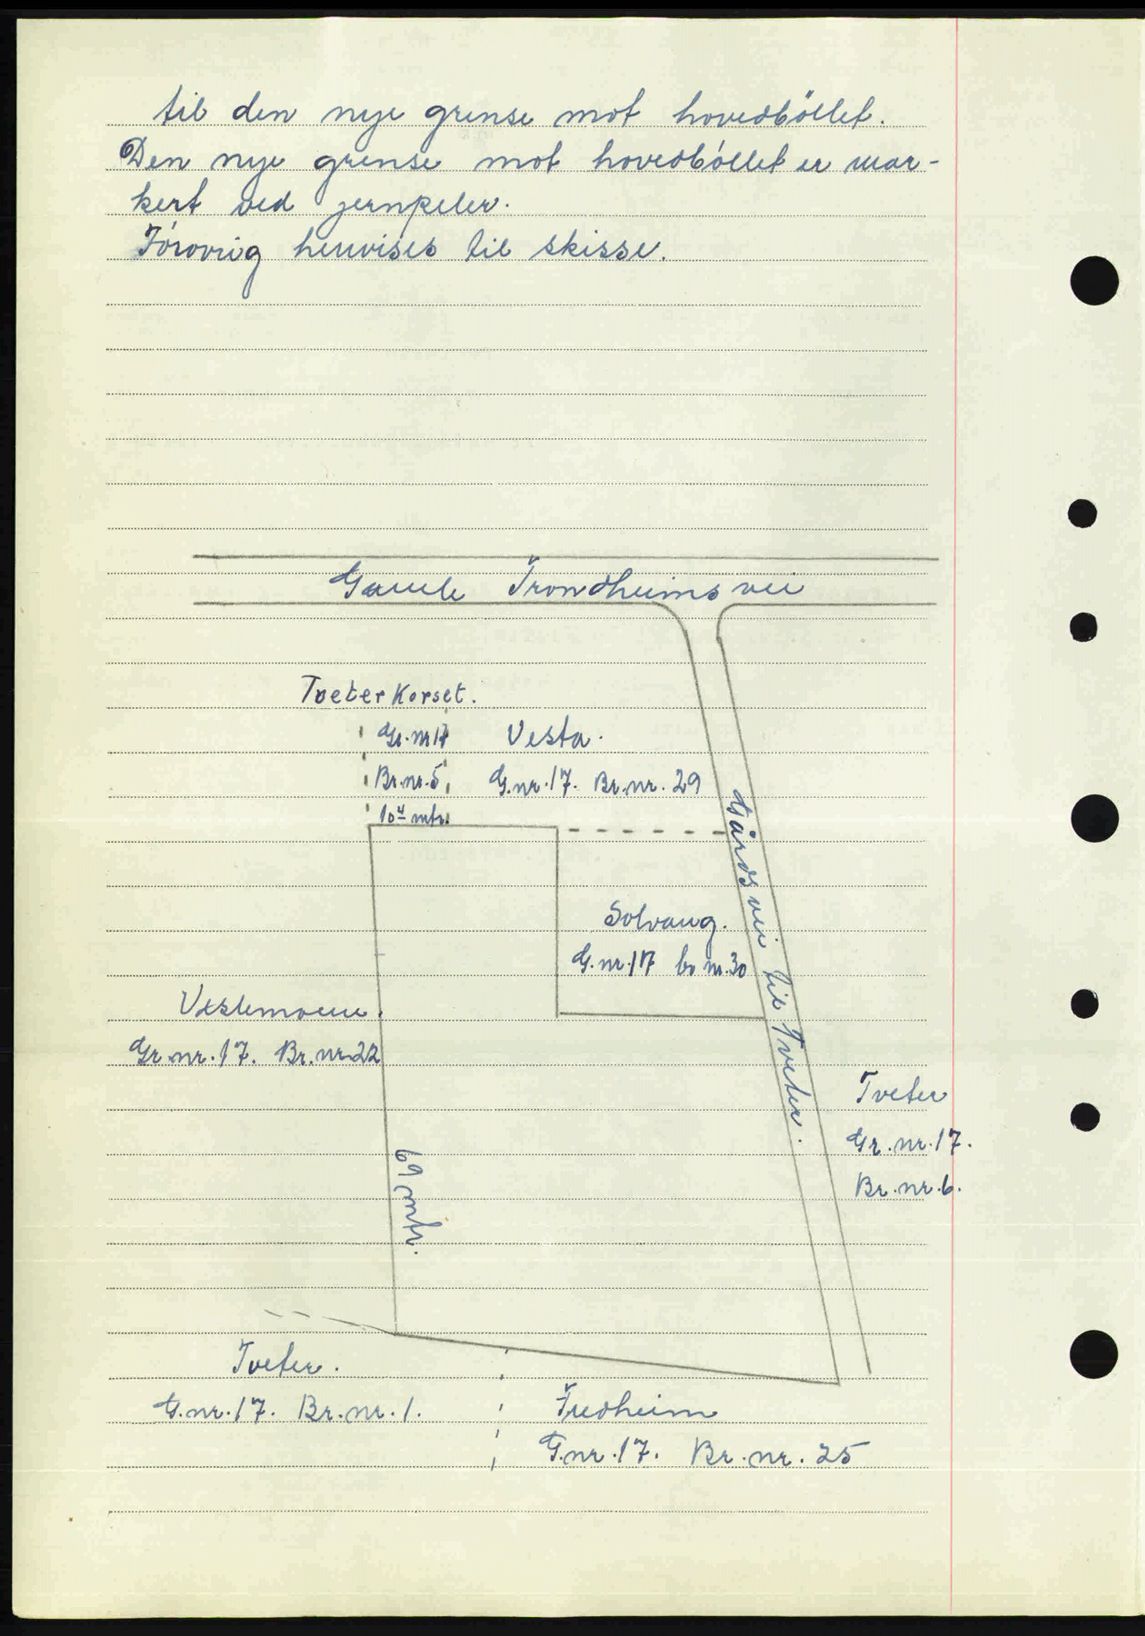 til den nye grense mot hovedbóllet.
Den nye grense mot hovedbóllet er mar-
kert ved jernpeler.
Fóróvrig henvises til skisse.
Gamle Trondheimsvei
Tveterkorset.
Gr.nr 17
Br.nr.5
10 mtr.
Vesta.
G.nr.17. Br.nr. 29
Gårdsvei til Tveter.
Solvang.
G.nr.17 br nr.30
Vestemoene.
Gr.nr.17. Br.nr.22
Tveter
Gr.nr.17.
Br.nr.6.
69 mtr.
Tveter.
G.nr.17. Br.nr.1.
Fredheim
G.nr.17. Br.nr.25